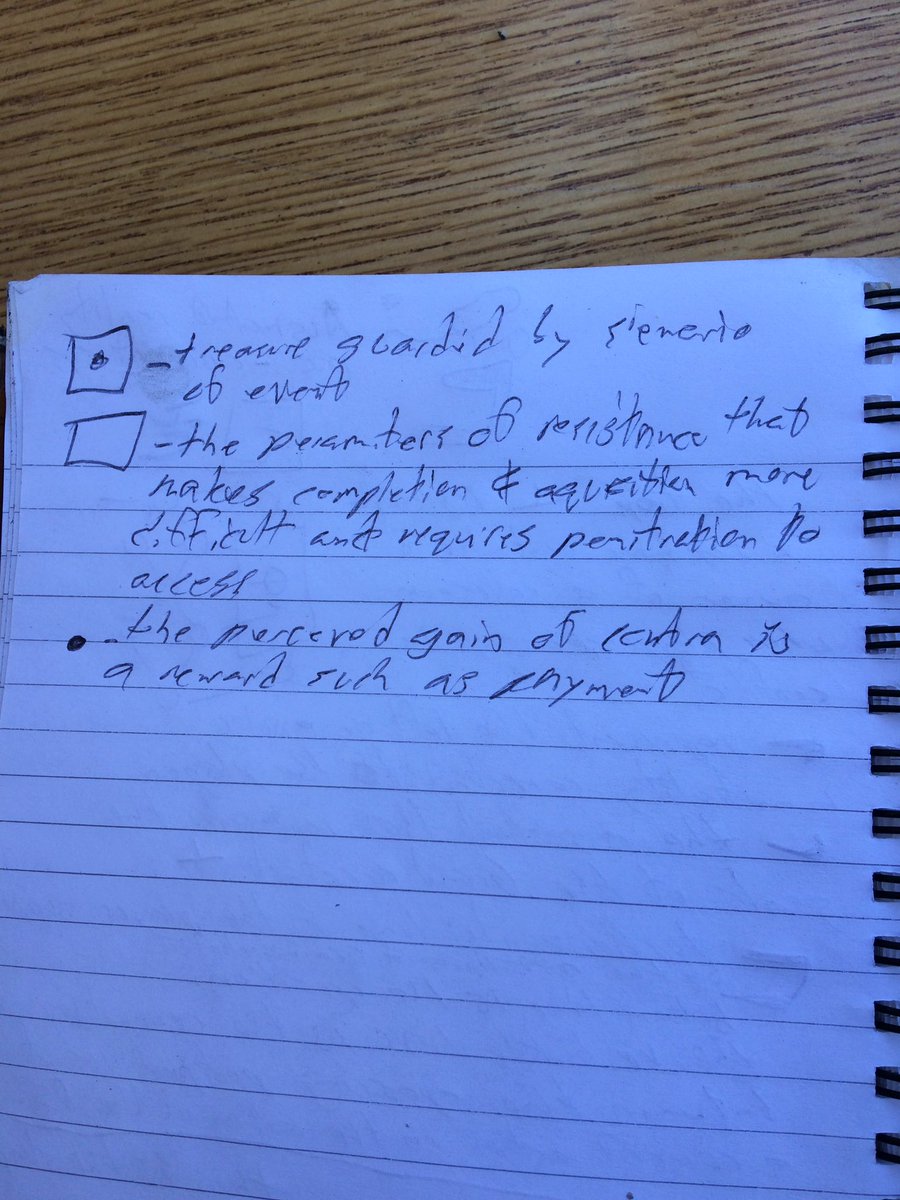 -treasure guardid by sienerio
of event
-the peramiters of resistance that
makes completion & aqusition more
difficult and requires penitration to
access
-the perceved gain of is
a reward such as payment